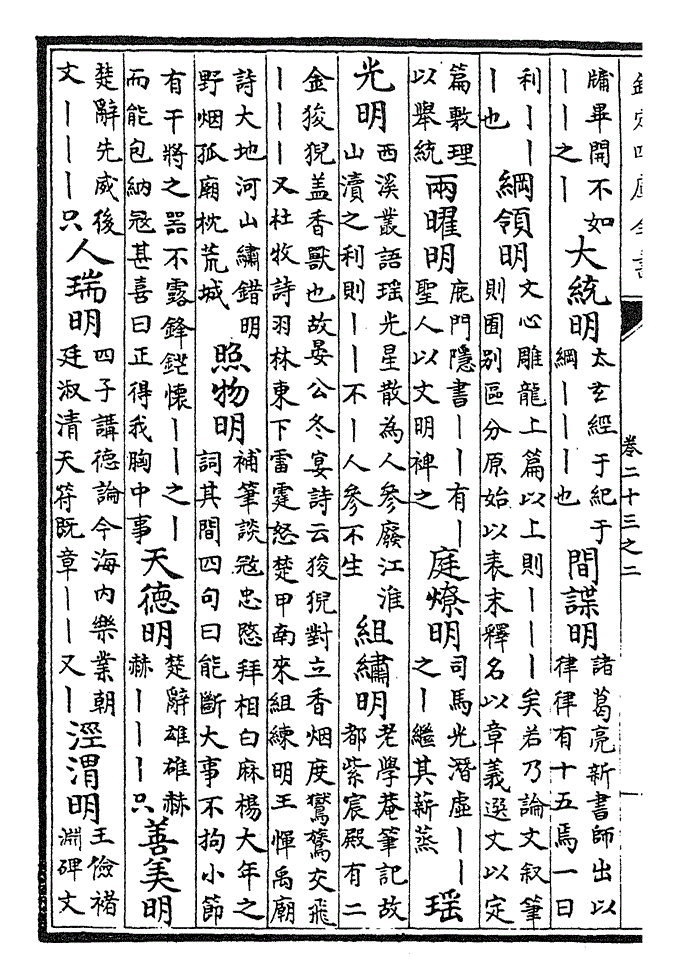 卷二十三之二
牗畢開不如
丨丨之丨
大統明
太玄經于紀于
綱丨丨丨也
間諜明
諸葛亮新書師出以
律律有十五焉一曰
利丨丨
丨也
綱領明
文心雕龍上篇以上則丨丨丨矣若乃論文叙筆
則囿别區分原始以表末釋名以章義選文以定
篇敷理
以舉統
兩曜明
鹿門隱書丨丨有丨
聖人以文明神之
庭燎明
司馬光潛虛丨丨
之丨繼其薪蒸
瑶
光明
西溪叢語瑶光星散為人參廢江淮
山瀆之利則丨丨不丨人參不生
組繡明
老學菴筆記故
都紫宸殿有二
金狻猊盖香獸也故晏公冬宴詩云狻猊對立香烟度鸑鷟交飛
丨丨丨又杜牧詩羽林東下雷霆怒楚甲南來組練明王惲禹廟
詩大地河山繡錯明
野烟孤廟枕荒城
照物明
補筆談冦忠愍拜相白麻楊大年之
詞其間四句曰能斷大事不拘小節
有干將之器不露鋒鋩懷丨丨之丨
而能包納冦甚喜曰正得我胸中事
天德明
楚辭雄雄赫
赫丨丨丨只
善美明
楚辭先威後
文丨丨丨只
人瑞明
四子講德論今海内樂業朝
廷淑清天符既章丨丨又丨
涇渭明
王儉褚
淵碑文